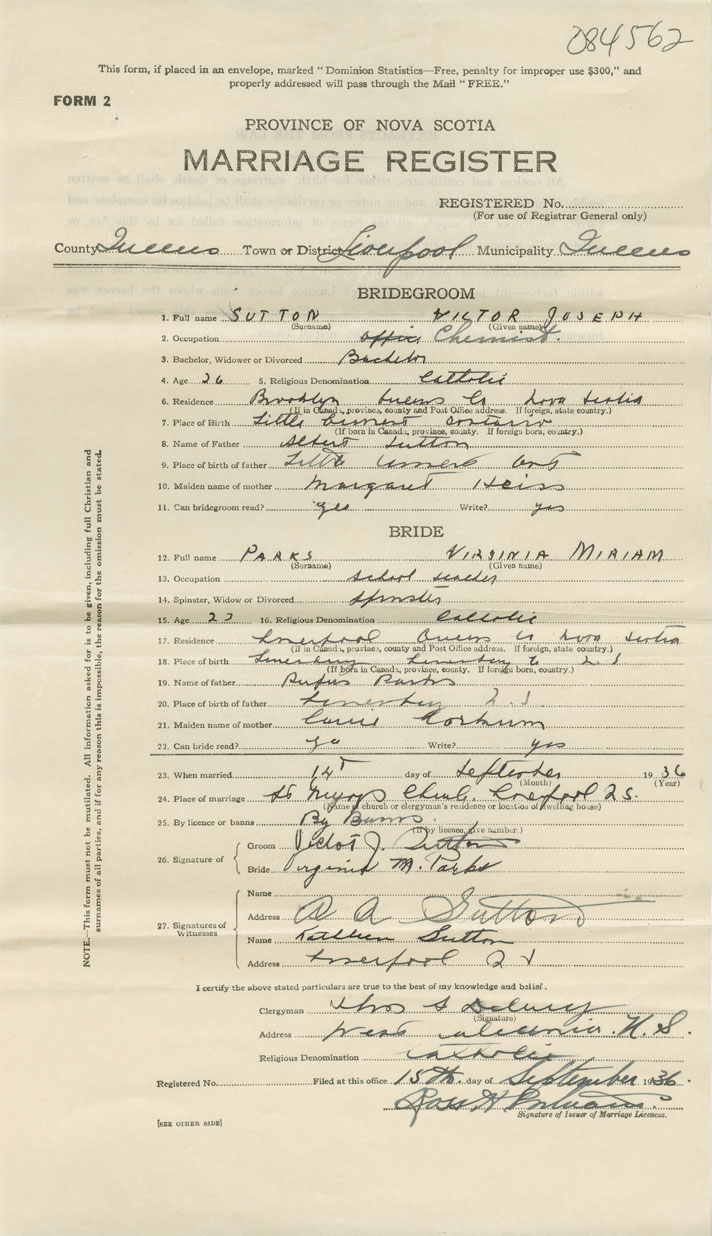 084562
This form, if placed in an envelope, marked "Dominion Statistics—Free, penalty for improper use $300," and
properly addressed will pass through the Mail "FREE."
FORM 2
PROVINCE OF NOVA SCOTIA
MARRIAGE REGISTER
REGISTERED No.
(For use of Registrar General only)
County Queens Town or District Liverpool Municipality Queens
BRIDEGROOM
1. Full name SUTTON VICTOR JOSEPH
(Surname) (Given name)
2. Occupation office Chemist.
3. Bachelor, Widower or Divorced Bachelor
4. Age 26 5. Religious Denomination Catholic
6. Residence Brooklyn Queens Co Nova Scotia
(If in Canada, province, county and Post Office address. If foreign, state country.)
7. Place of Birth Little Current Ontario
(If born in Canada, province, county. If foreign born, country.)
8. Name of Father Albert Sutton
9. Place of birth of father Little Current Ont
10. Maiden name of mother Margaret Heiss
11. Can bridegroom read? yes Write? yes
BRIDE
12. Full name PARKS VIRGINIA MIRIAM
(Surname) (Given name)
13. Occupation school teacher
14. Spinster, Widow or Divorced Spinster
15. Age 23 16. Religious Denomination Catholic
17. Residence Liverpool Queens Co Nova Scotia
(If in Canada, province, county and Post Office address. If foreign, state country.)
18. Place of birth Lunenburg Lunenburg Co N.S
(If born in Canada, province, county. If foreign born, country.)
19. Name of father Rufus Parks
20. Place of birth of father Lunenburg N.S
21. Maiden name of mother Carrie Corkum
22. Can bride read? yes Write? yes
23. When married 14th day of September 1936
(Month) (Year)
24. Place of marriage St Church Liverpool N.S.
(Name of church or clergyman's residence or location of dwelling house)
25. By licence or banns By Banns
(If by licence, give number.)
26. Signature of
Groom Victor J. Sutton
Bride Virginia M. Parks
27. Signatures of Witnesses
Name
Address A A Sutton
Name Kathleen Sutton
Address Liverpool N S
I certify the above stated particulars are true to the best of my knowledge and belief.
Clergyman Thos
(Signature)
Address West Caledonia. N.S.
Religious Denomination Catholic
Registered No. Filed at this office 15th. day of September 1936.
Ross
Signature of Issuer of Marriage Licences.
[SEE OTHER SIDE]
NOTE.—This form must not be mutilated. All information asked for is to be given, including full Christian and
surnames of all parties, and if for any reason this is impossible, the reason for the omission must be stated.